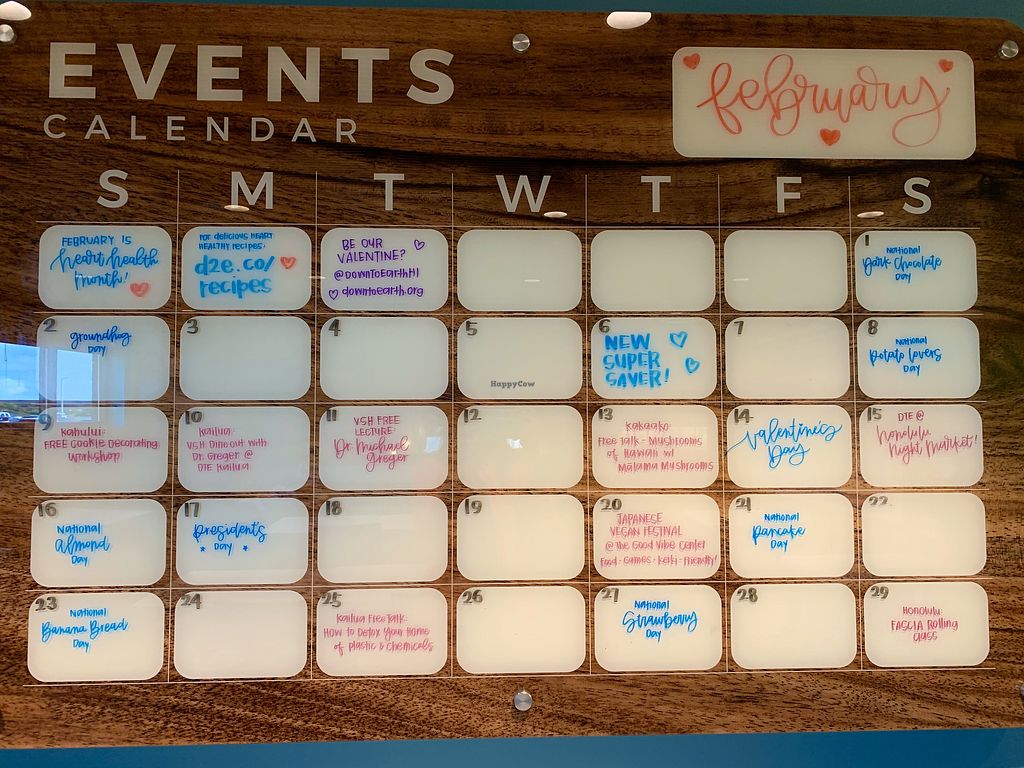 EVENTS
CALENDAR
february
S M T W T F S
FEBRUARY IS
heart health
month!
for delicious HEART
HEALTHY recipes.
d2e.co/
recipes
BE OUR
VALENTINE?
@DOWNTOEARTHHI
downtoearth.org
1
National
Dark Chocolate
Day
2
groundhog
Day
3
4
5
HappyCow
6
NEW
SUPER
SAVER!
7
8
National
Potato Lovers
Day
9
Kahului:
FREE Cookie Decorating
Workshop
10
Kailua:
VSH Dineout with
Dr. Greger @
DTE Kailua
11
VSH FREE
LECTURE:
Dr. Michael
Greger
12
13
Kakaako
Free Talk - Mushrooms
of Hawaii w/
Malama Mushrooms
14
Valentine's
Day
15
DTE @
Honolulu
Night Market!
16
National
Almond
Day
17
President's
* DAY *
18
19
20
JAPANESE
VEGAN FESTIVAL
@ The Good Vibe Center
Food - Games - Keiki - Friendly!
21
National
Pancake
Day
22
23
National
Banana Bread
Day
24
25
Kailua Free Talk:
How to Detox Your Home
of Plastic & Chemicals
26
27
National
Strawberry
Day
28
29
Honolulu:
FASCIA Rolling
Class